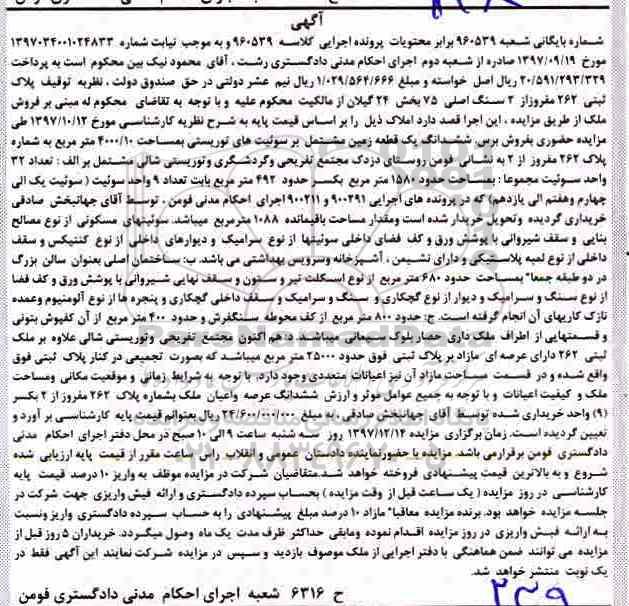 آگهی
شماره بایگانی شعبه ۹۶۰۵۳۹ برابر محتویات پرونده اجرایی کلاسه ۹۶۰۵۳۹ و به موجب نیابت شماره ۱۳۹۷۰۳۴۰۰۱۰۲۴۸۳۳
مورخ ۱۳۹۷/۰۹/۱۹ صادره از شعبه دوم اجرای احکام مدنی دادگستری رشت ، آقای محمود نیک بین محکوم است به پرداخت
۲۰/۵۹۱/۲۹۳/۳۲۹ ریال اصل خواسته و مبلغ ۱/۰۲۹/۵۶۴/۶۶۶ ریال نیم عشر دولتی در حق صندوق دولت ، نظریه توقیف پلاک
ثبتی ۲۶۲ مفروز از ۲ سنگ اصلی ۷۵ بخش ۲۴ گیلان از مالکیت محکوم علیه و با توجه به تقاضای محکوم له مبنی بر فروش
ملک از طریق مزایده ، این اجرا قصد دارد املاک ذیل را بر اساس قیمت پایه به شرح نظریه کارشناسی مورخ ۱۳۹۷/۱۰/۱۲ طی
مزایده حضوری بفروش برس ششدانگ یک قطعه زمین مشتمل بر سوئیت های توریستی بمساحت ۴۰۰۰/۱۰ متر مربع به شماره
پلاک ۲۶۲ مفروز از ۲ به نشانی فومن روستای دزدک مجتمع تفریحی وگردشگری وتوریستی شالی مشتمل بر الف : تعداد ۳۲
واحد سوئیت مجموعا : بمساحت حدود ۱۵۸۰ متر مربع بکسر حدود ۴۹۲ متر مربع بابت تعداد ۹ واحد سوئیت ( سوئیت یک الی
چهارم وهفتم الی یازدهم) که در پرونده های اجرایی ۹۰۰۲۹۱ و ۹۰۰۲۱۱ اجرای احکام مدنی فومن ، توسط آقای جهانبخش صادقی
خریداری گردیده وتحویل خریدار شده است ومقدار مساحت باقیمانده ۱۰۸۸ مترمربع میباشد. سوئیتهای مسکونی از نوع مصالح
بنایی و سقف شیروانی با پوشش ورق و کف فضای داخلی سوئیتها از نوع سرامیک و دیوارهای داخلی از نوع کنتیکس و سقف
داخلی از نوع لمبه پلاستیکی و دارای نشیمن ، آشپزخانه وسرویس بهداشتی می باشد. ب: ساختمان اصلی بعنوان سالن بزرگ
در دو طبقه جمعا" بمساحت حدود ۶۸۰ متر مربع از نوع اسکلت تیر و ستون و سقف نهایی شیروانی با پوشش ورق و کف فضا
از نوع سنگ و سرامیک و دیوار از نوع گچکاری و سنگ و سرامیک و سقف داخلی گچکاری و پنجره ها از نوع آلومنیوم وعمده
نازک کاریهای آن انجام گرفته است. ج: حدود ۸۰۰ متر مربع از کف محوطه سنگفرش و حدود ۴۰۰ متر مربع از آن کفپوش بتونی
و قسمتهایی از اطراف ملک داری حصار بلوک سیمانی میباشد. د: هم اکنون مجتمع تفریحی وتوریستی شالی علاوه بر ملک
ثبتی ۲۶۲ دارای عرصه ای مازاد بر پلاک ثبتی فوق حدود ۲۵۰۰۰ متر مربع میباشد که بصورت تجمیعی در کنار پلاک ثبتی فوق
واقع شده و در قسمت مساحت مازاد آن نیز اعیانات متعددی وجود دارد. با توجه به شرایط زمانی و موقعیت مکانی ومساحت
ملک و کیفیت اعیانات و با توجه به جمیع عوامل موثر و ارزش ششدانگ عرصه واعیان ملک بشماره پلاک ۲۶۲ مفروز از ۲ بکسر
(۹) واحد خریداری شده توسط آقای جهانبخش صادقی ، به مبلغ ۲۴/۶۰۰/۰۰۰/۰۰۰ ریال بعنوانم قیمت پایه کارشناسی بر آورد و
تعیین گردیده است. زمان برگزاری مزایده ۱۳۹۷/۱۲/۱۴ روز سه شنبه ساعت ۹ الی ۱۰ صبح در محل دفتر اجرای احکام مدنی
دادگستری فومن برقرار می باشد. مزایده با حضور نماینده دادستان عمومی و انقلاب راس ساعت مقرر از قیمت پایه ارزیابی شده
شروع و به بالاترین قیمت پیشنهادی فروخته خواهد شد. متقاضیان شرکت در مزایده موظف به واریز ۱۰ درصد قیمت پایه
کارشناسی در روز مزایده ( یک ساعت قبل از وقت مزایده ) بحساب سپرده دادگستری و ارائه فیش واریزی جهت شرکت در
جلسه مزایده خواهد بود. برنده مزایده معاقبا" مازاد ۱۰ درصد مبلغ پیشنهادی را به حساب سپرده دادگستری واریز ونسبت
به ارائه فیش واریزی در روز مزایده اقدام نموده ومابقی حداکثر ظرف مدت یک ماه وصول میگردد. خریداران ۵ روز قبل از
مزایده می توانند ضمن هماهنگی با دفتر اجرایی از ملک موصوف بازدید و سپس در مزایده شرکت نمایند این آگهی فقط در
یک نوبت منتشر خواهد شد.
ح ۶۳۱۶ شعبه اجرای احکام مدنی دادگستری فومن
۲۳۹